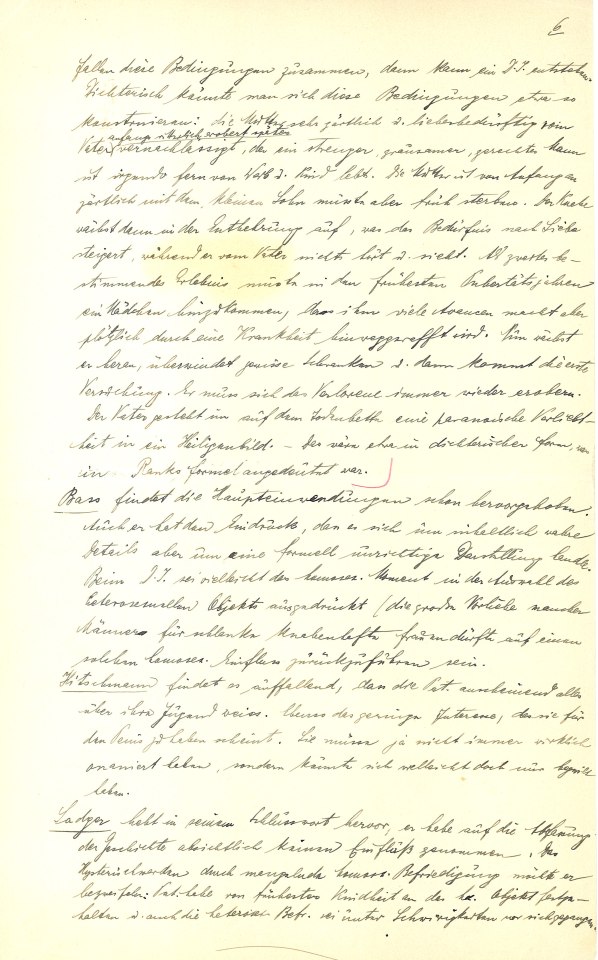 6
fallen diese Bedingungen zusammen, dann kann ein D.J. entstehen.
Dichterisch könnte man sich diese Bedingungen etwa so
konstruieren: die Mutter sehr zärtlich u. liebesbedürftig vom
anfangs später
Vater vernachlässigt, der ein strenger, grausamer, gerechter Mann
ist irgendo fern von Weib u. Kind lebt. Die Mutter ist von Anfang an
zärtlich mit dem kleinen Sohn müsste aber früh sterben. Der Knabe
wächst dann in der Entbehrung auf, was das Bedürfnis nach Liebe
steigert, während er vom Vater nichts hört u. sieht. Als zweites be-
stimmendes Erlebnis müsste in den frühesten Pubertätsjahren
ein Mädchen hinzukommen, dass ihm viele Avancen macht aber
plötzlich durch eine Krankheit hinweggerafft wird. Nun wächst
er heran, überwindet gewisse Schranken u. dann kommt die erste
Versuchung. Er muss sich das Verlorene immer wieder erobern.
Der Vater gesteht ihm auf dem Todenbette eine paranoische Verliebt-
heit in ein Heiligenbild. – Das wäre etwa in dichterischer Form, was
in Ranks Formel angedeutet war.
Bass findet die Haupteinwendungen schon hervorgehoben.
Auch er hat den Eindruck, dass es sich um inhaltlich wahre
Details aber um eine formell unrichtige Darstellung handle.
Beim D.J. sei vielleicht das homosex. Moment in der Auswahl des
heterosexuellen Objekts ausgedrückt (die große Vorliebe mancher
Männer für schlanke knabenhafte Frauen dürfte auf einen
solchen homosex. Einfluss zurückzuführen sein.
Hitschmann findet es auffallend, dass die Pat. anscheinend alles
über ihre Jugend weiss. Ebenso das geringe Interesse, das sie für
den Penis zu haben scheint. Sie müsse ja nicht immer wirklich
onaniert haben, sondern könnte sich vielleicht doch nur begnügt
haben.
Sadger hebt in seinem Schlusswort hervor, er habe auf die Abfassung
der Geschichte absichtlich keinen Einfluß genommen. Das
Hysterischwerden durch mangelnde homosex. Befriedigung möchte er
bezweifeln: Pat. habe von frühester Kindheit an das Objekt festge-
halten u. auch die Befr. sei unter Schwierigkeiten vor sich gegangen.